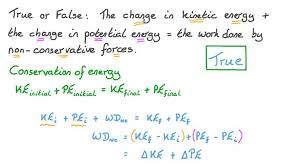 True or False: The change in kinetic energy +
the change in potential energy = the work done by
non-conservative forces.
True
Conservation of energy
KE initial + PE initial = KE final + PE final
KEi + PEi + WDnc = KEf + PEf
WDnc = (KEf - KEi) + (PEf - PEi)
= ΔKE + ΔPE